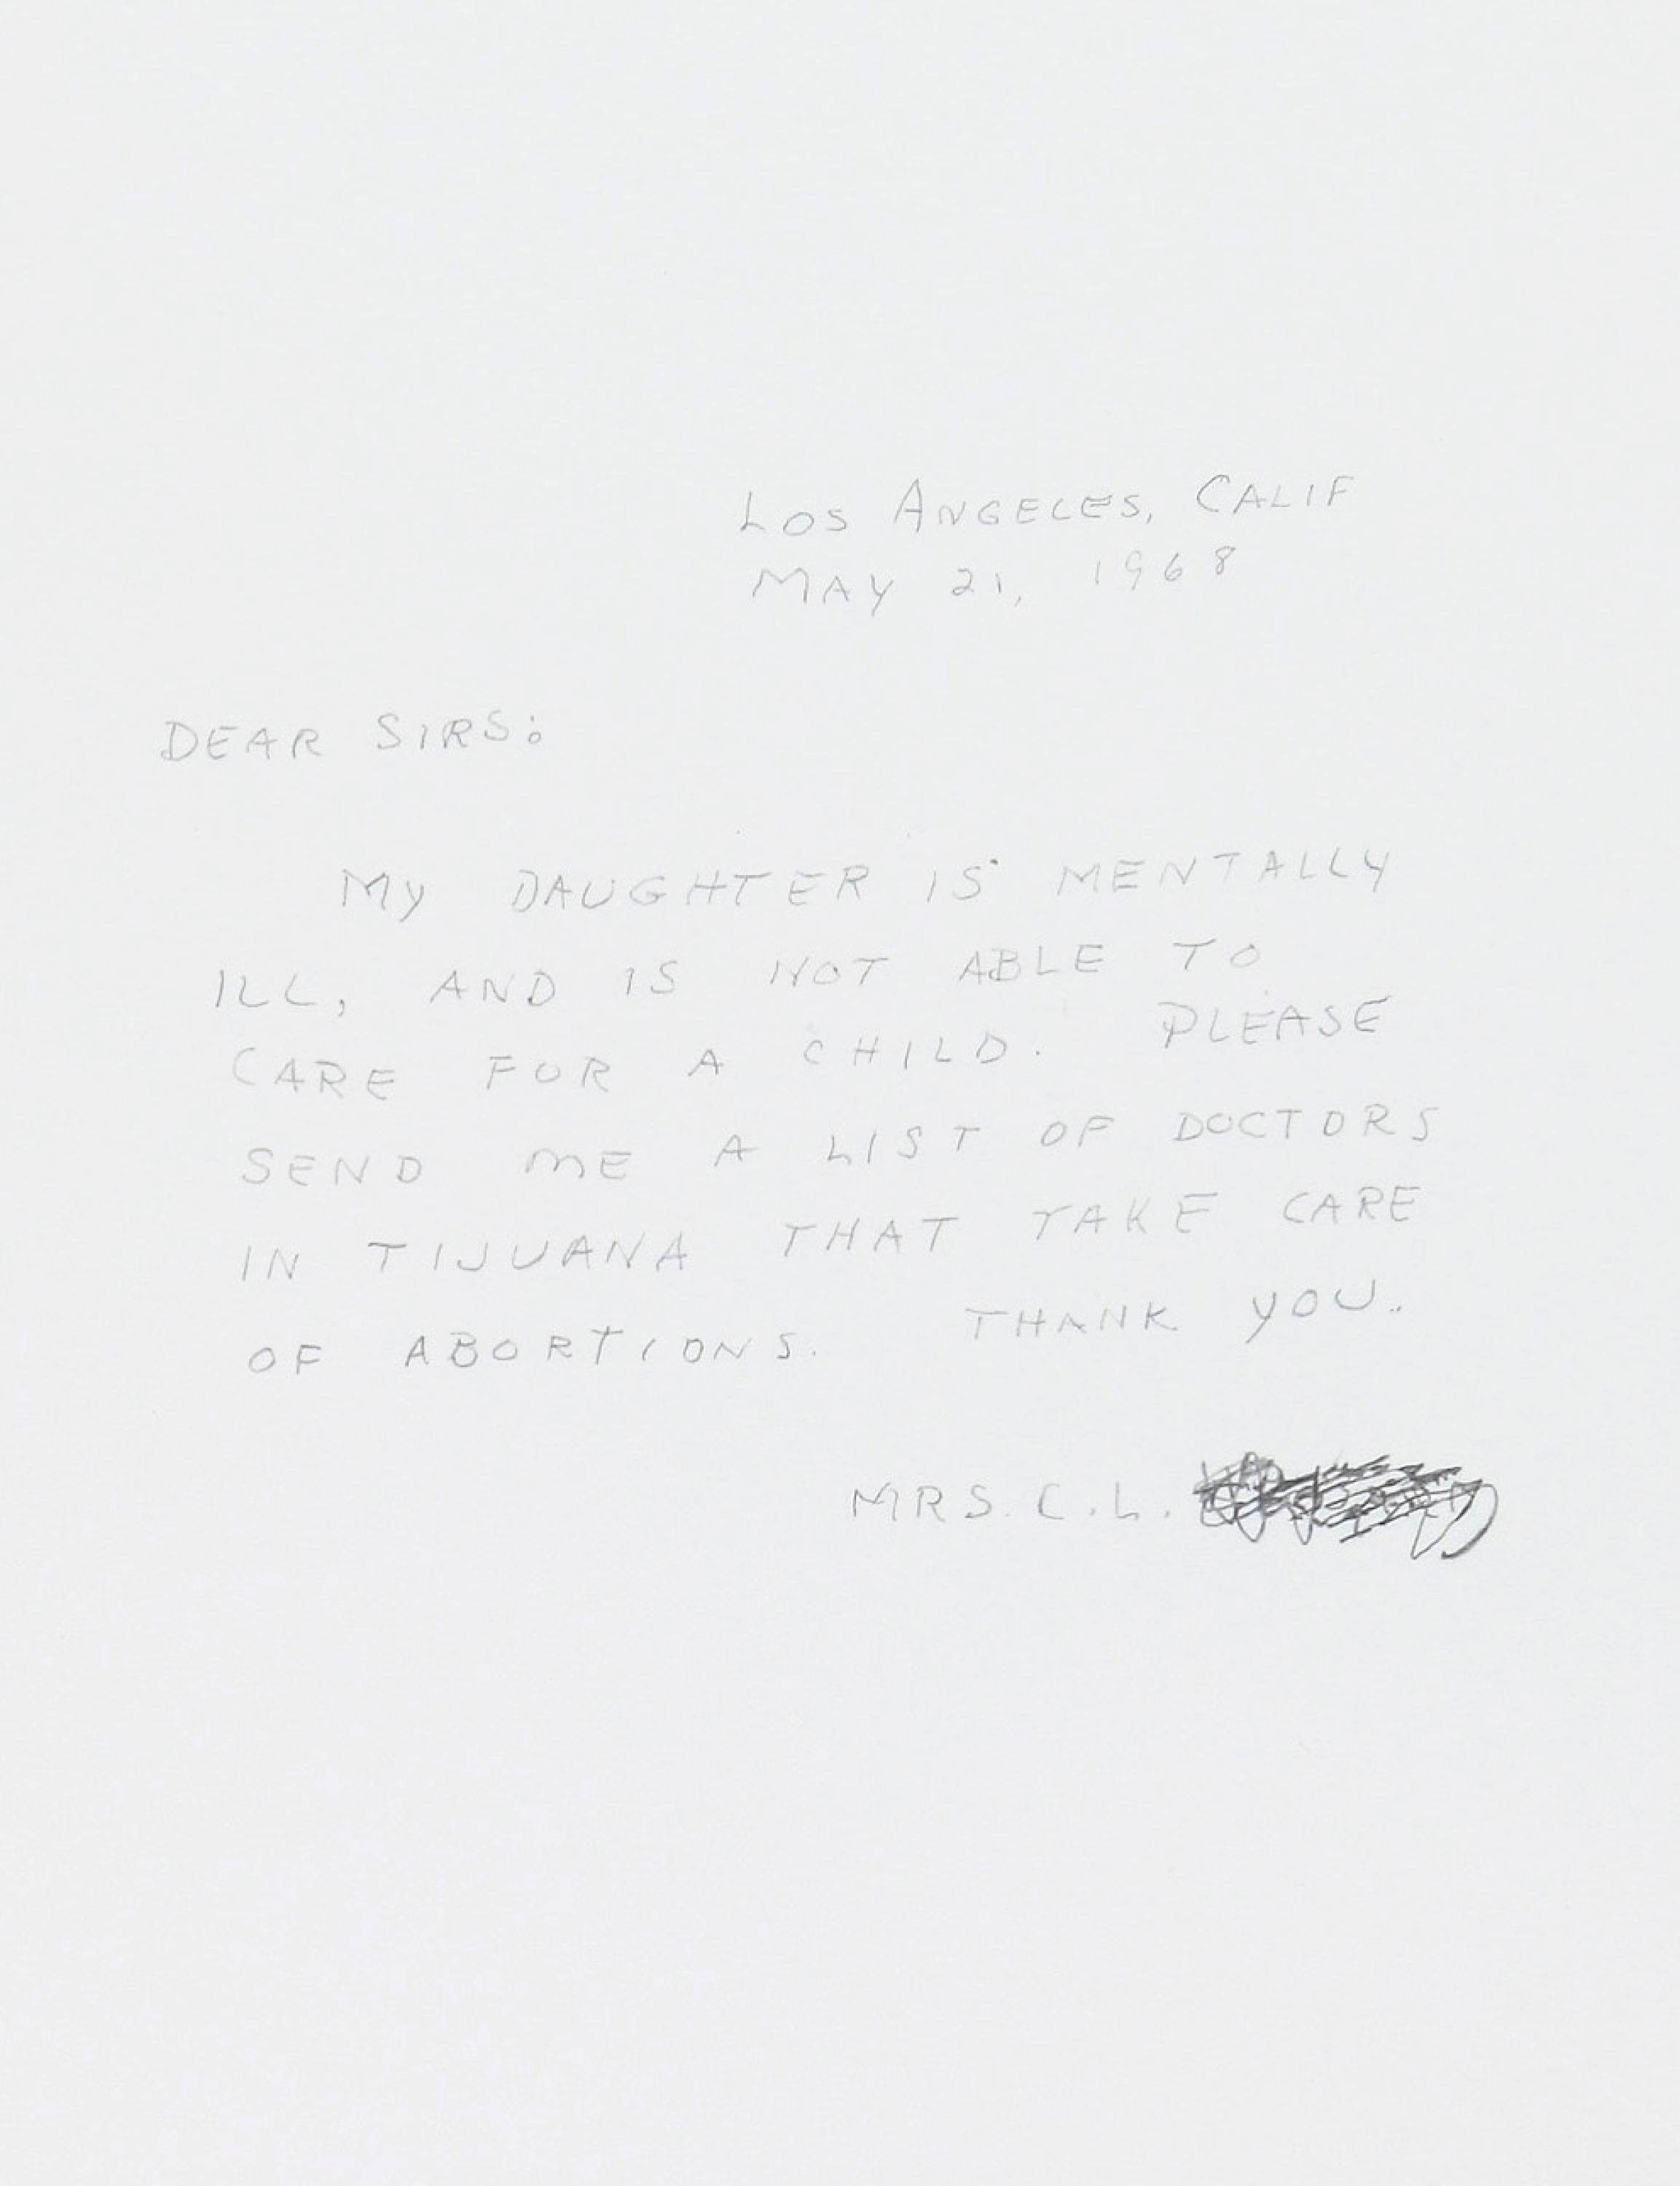 LOS ANGELES, CALIF
MAY 21, 1968
DEAR SIRS:
MY DAUGHTER IS MENTALLY
ILL, AND IS NOT ABLE TO
CARE FOR A CHILD. PLEASE
SEND ME A LIST OF DOCTORS
IN TIJUANA THAT TAKE CARE
OF ABORTIONS. THANK YOU.
MRS. C.L.